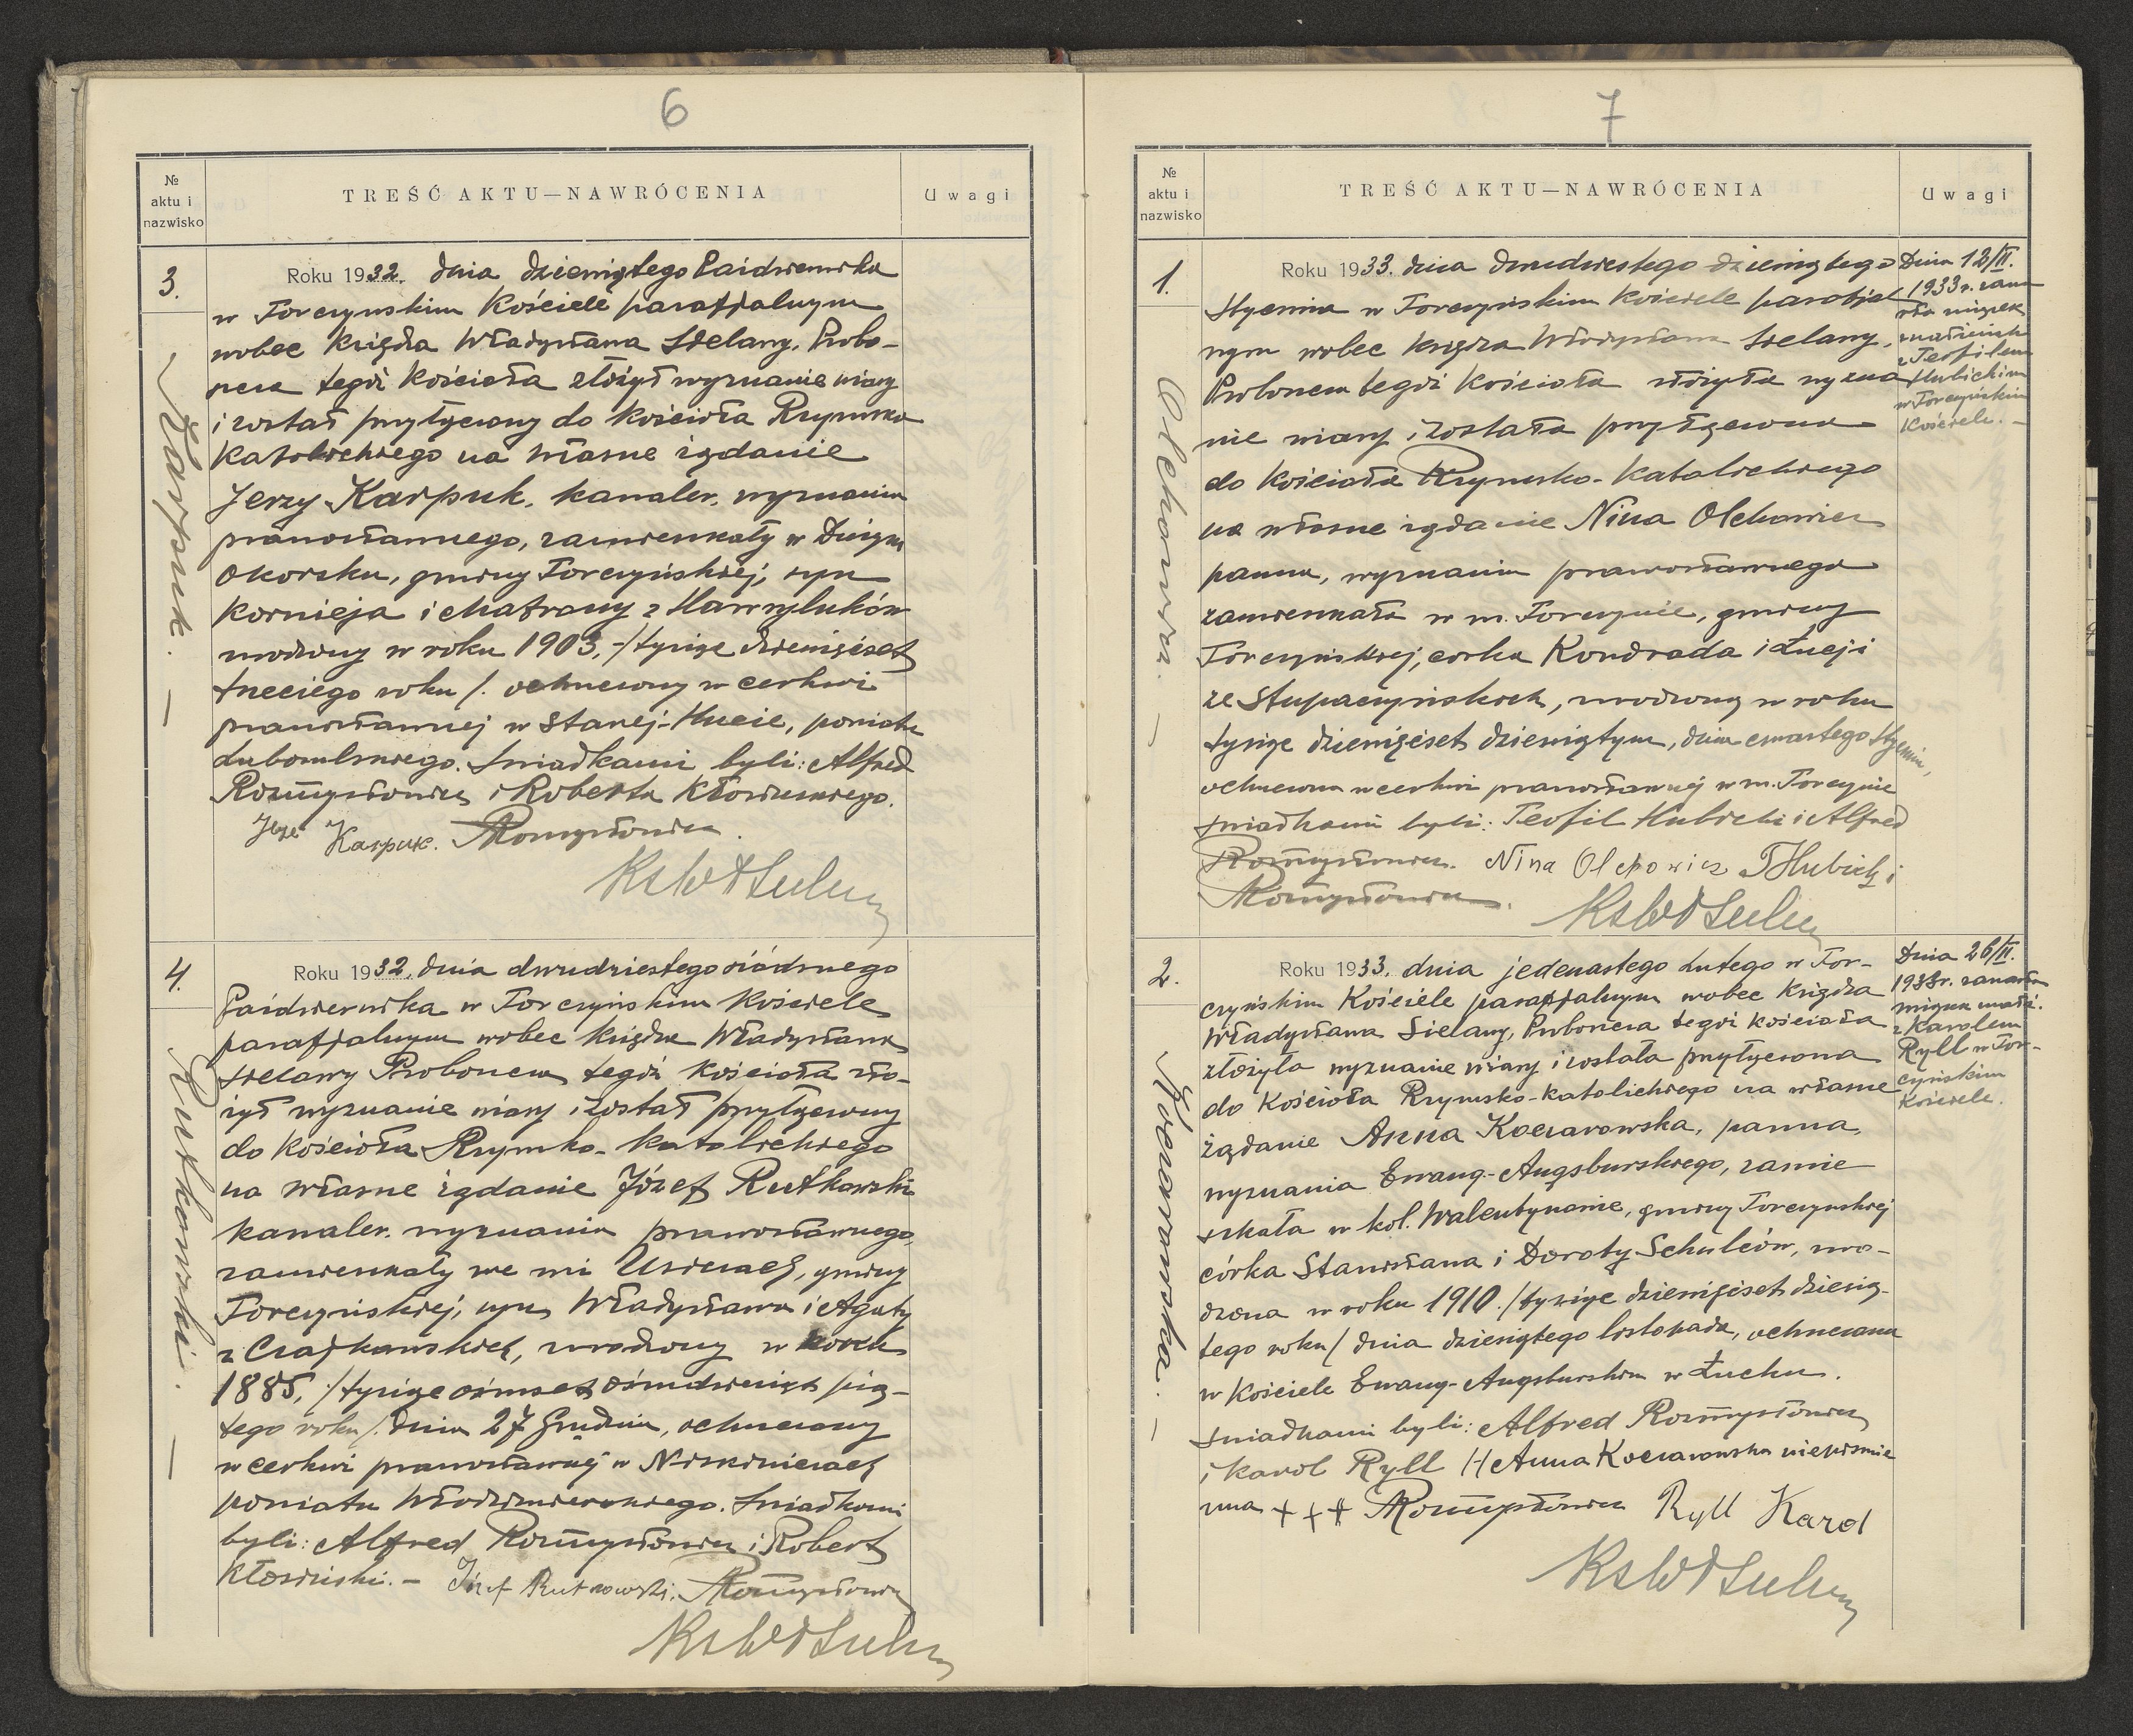 6
№
aktu i
nazwisko
TREŚĆ AKTU—NAWRÓCENIA
Uwagi
3.
Karpuk. —
Roku 1932. dnia dziewiątego Października
w Torczyńskim Kościele parafjalnym
wobec Księdza Władysława Sielawy, Probo-
szcza tegoż Kościoła złożył wyznanie wiary
i został przyłączony do Kościoła Rzymsko
Katolickiego na własne żądanie
Jerzy Karpuk, kawaler, wyznania
prawosławnego, zamieszkały w Dużym
Okorsku, gminy Torczyńskiej, syn
Kornieja i Matrony z Hawryluków
urodzony w roku 1903, /tysiąc dziewięćset
trzeciego roku/. ochrzczony w cerkwi
prawosławnej w Starej-Hucie, powiatu
Lubomlskiego. Świadkami byli: Alfred
Rozmysłowicz i Roberta Kłosińskiego.
Jeży Karpuk. Rozmysłowicz.
Ks Wł Sielawy
4.
Rutkowski. —
Roku 1932, dnia dwudziestego siódmego
Października w Torczyńskim Kościele
parafjalnym wobec Księdza Władysława
Sielawy Proboszcza tegoż Kościoła zło-
żył wyznanie wiary i został przyłączony
do Kościoła Rzymsko-Katolickiego
na własne żądanie Józef Rutkowski
kawaler, wyznania prawosławnego,
zamieszkały we wsi Usiczach, gminy
Torczyńskiej, syn Władysława i Agaty
z Czajkowskich, urodzony w roku
1885, /tysiąc ośmset ośmdziesiąt pią-
tego roku/. dnia 27 Grudnia, ochrzczony
w cerkwi prawosławnej w Niskiniczach
powiatu Włodzimierskiego. Świadkami
byli: Alfred Rozmysłowicz i Robert
Kłosiński. — Józef Rutkowski. Rozmysłowicz
Ks Wł Sielawy
7
№
aktu i
nazwisko
TREŚĆ AKTU—NAWRÓCENIA
Uwagi
1.
Olchowicz. —
Roku 1933. dnia dwudziestego dziewiątego
Stycznia w Torczyńskim Kościele parafjal
nym wobec Księdza Władysława Sielawy,
Proboszcza tegoż Kościoła złożyła wyzna
nie wiary i została przyłączona
do Kościoła Rzymsko-Katolickiego
na własne żądanie Nina Olchowicz
panna, wyznania prawosławnego
zamieszkała w m. Torczynie, gminy
Torczyńskiej, córka Kondrada i Łucji
ze Stupaczyńskich, urodzony w roku
tysiąc dziewięćset dziewiątym, dnia czwartego Stycznia,
ochrzczona w cerkwi prawosławnej w m. Torczynie
Świadkami byli: Teofil Hubicki i Alfred
Rozmysłowicz. Nina Olchowicz THubicki
Rozmysłowicz.
Ks Wł Sielawy
Dnia 12/II.
1933 r. zawar
ła związek
małżeński
z Teofilem
Hubickim
w Torczyńskim
Kościele. —
2.
Koczarowska. —
Roku 1933. dnia jedenastego Lutego w Tor-
czyńskim Kościele parafjalnym wobec Księdza
Władysława Sielawy, Proboszcza tegoż Kościoła
złożyła wyznanie wiary i została przyłączona
do Kościoła Rzymsko-katolickiego na własne
żądanie Anna Koczarowska, panna,
wyznania Ewang-Augsburskiego, zamie
szkała w kol. Walentynowie, gminy Torczyńskiej
córka Stanisława i Doroty Schulców, uro-
dzona w roku 1910. /tysiąc dziewięćset dziesią-
tego roku/ dnia dziesiątego listopada, ochrzczona
w Kościele Ewang-Augsburskim w Łucku.
Świadkami byli: Alfred Rozmysłowicz
i Karol Ryll Anna Koczarowska niepiśmie
nna +++ Rozmysłowicz Ryll Karol
Ks Wł Sielawy
Dnia 26/II.
1933 r. zawarła
związek małż.
z Karolem
Ryll w Tor-
czyńskim
Kościele.